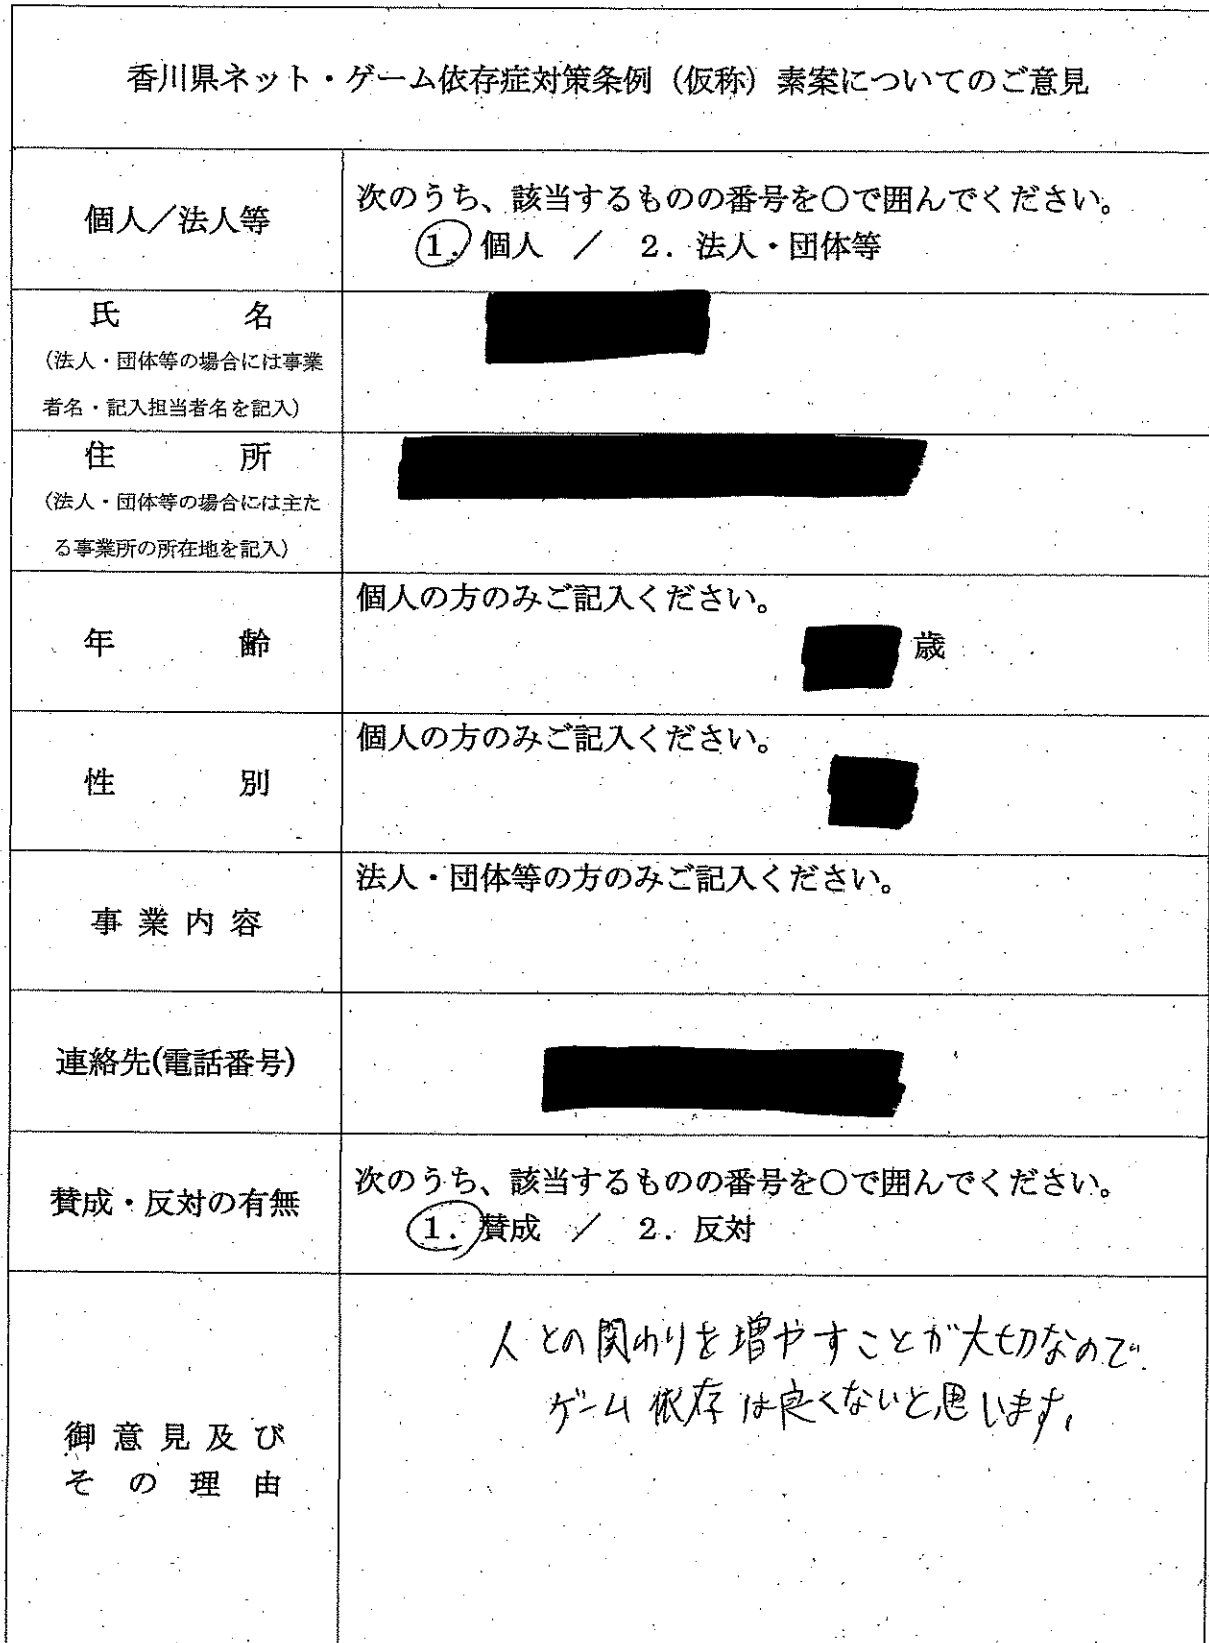 香川県ネット・ゲーム依存症対策条例（仮称）素案についてのご意見
個人／法人等
次のうち、該当するものの番号を○で囲んでください。
1. 個人 ／ 2. 法人・団体等
氏名
（法人・団体等の場合には事業
者名・記入担当者名を記入）
住所
（法人・団体等の場合には主た
る事業所の所在地を記入）
年齢
個人の方のみご記入ください。
歳
性別
個人の方のみご記入ください。
事業内容
法人・団体等の方のみご記入ください。
連絡先(電話番号)
賛成・反対の有無
次のうち、該当するものの番号を○で囲んでください。
1. 賛成 ／ 2. 反対
御意見及び
その理由
人との関わりを増やすことが大切なので
ゲーム依存は良くないと思います。